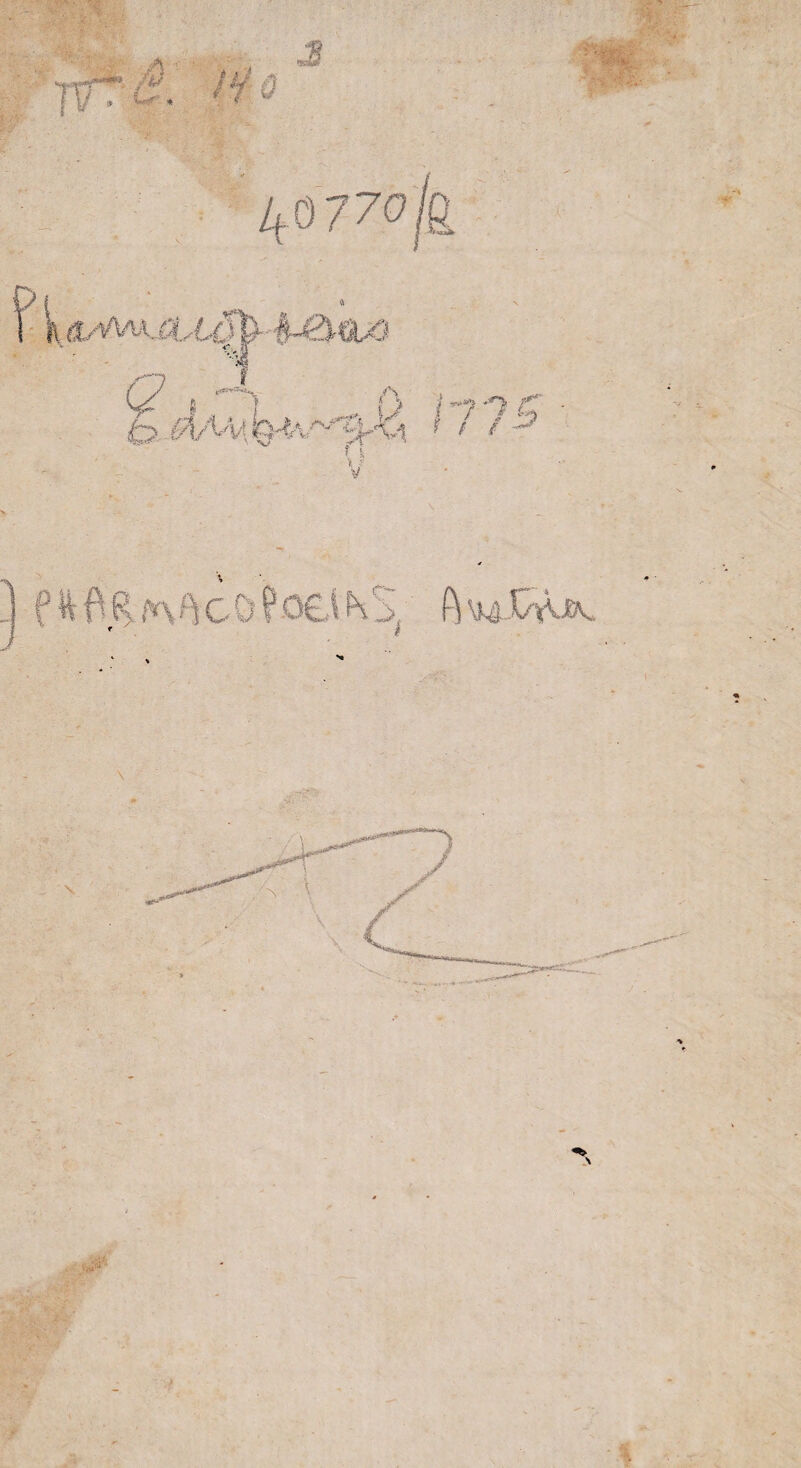 IV. C. 140 B
40770/A
Pharmacopoeias
Edinburgh 1775
] PHARMACOPOEIAS, Austria